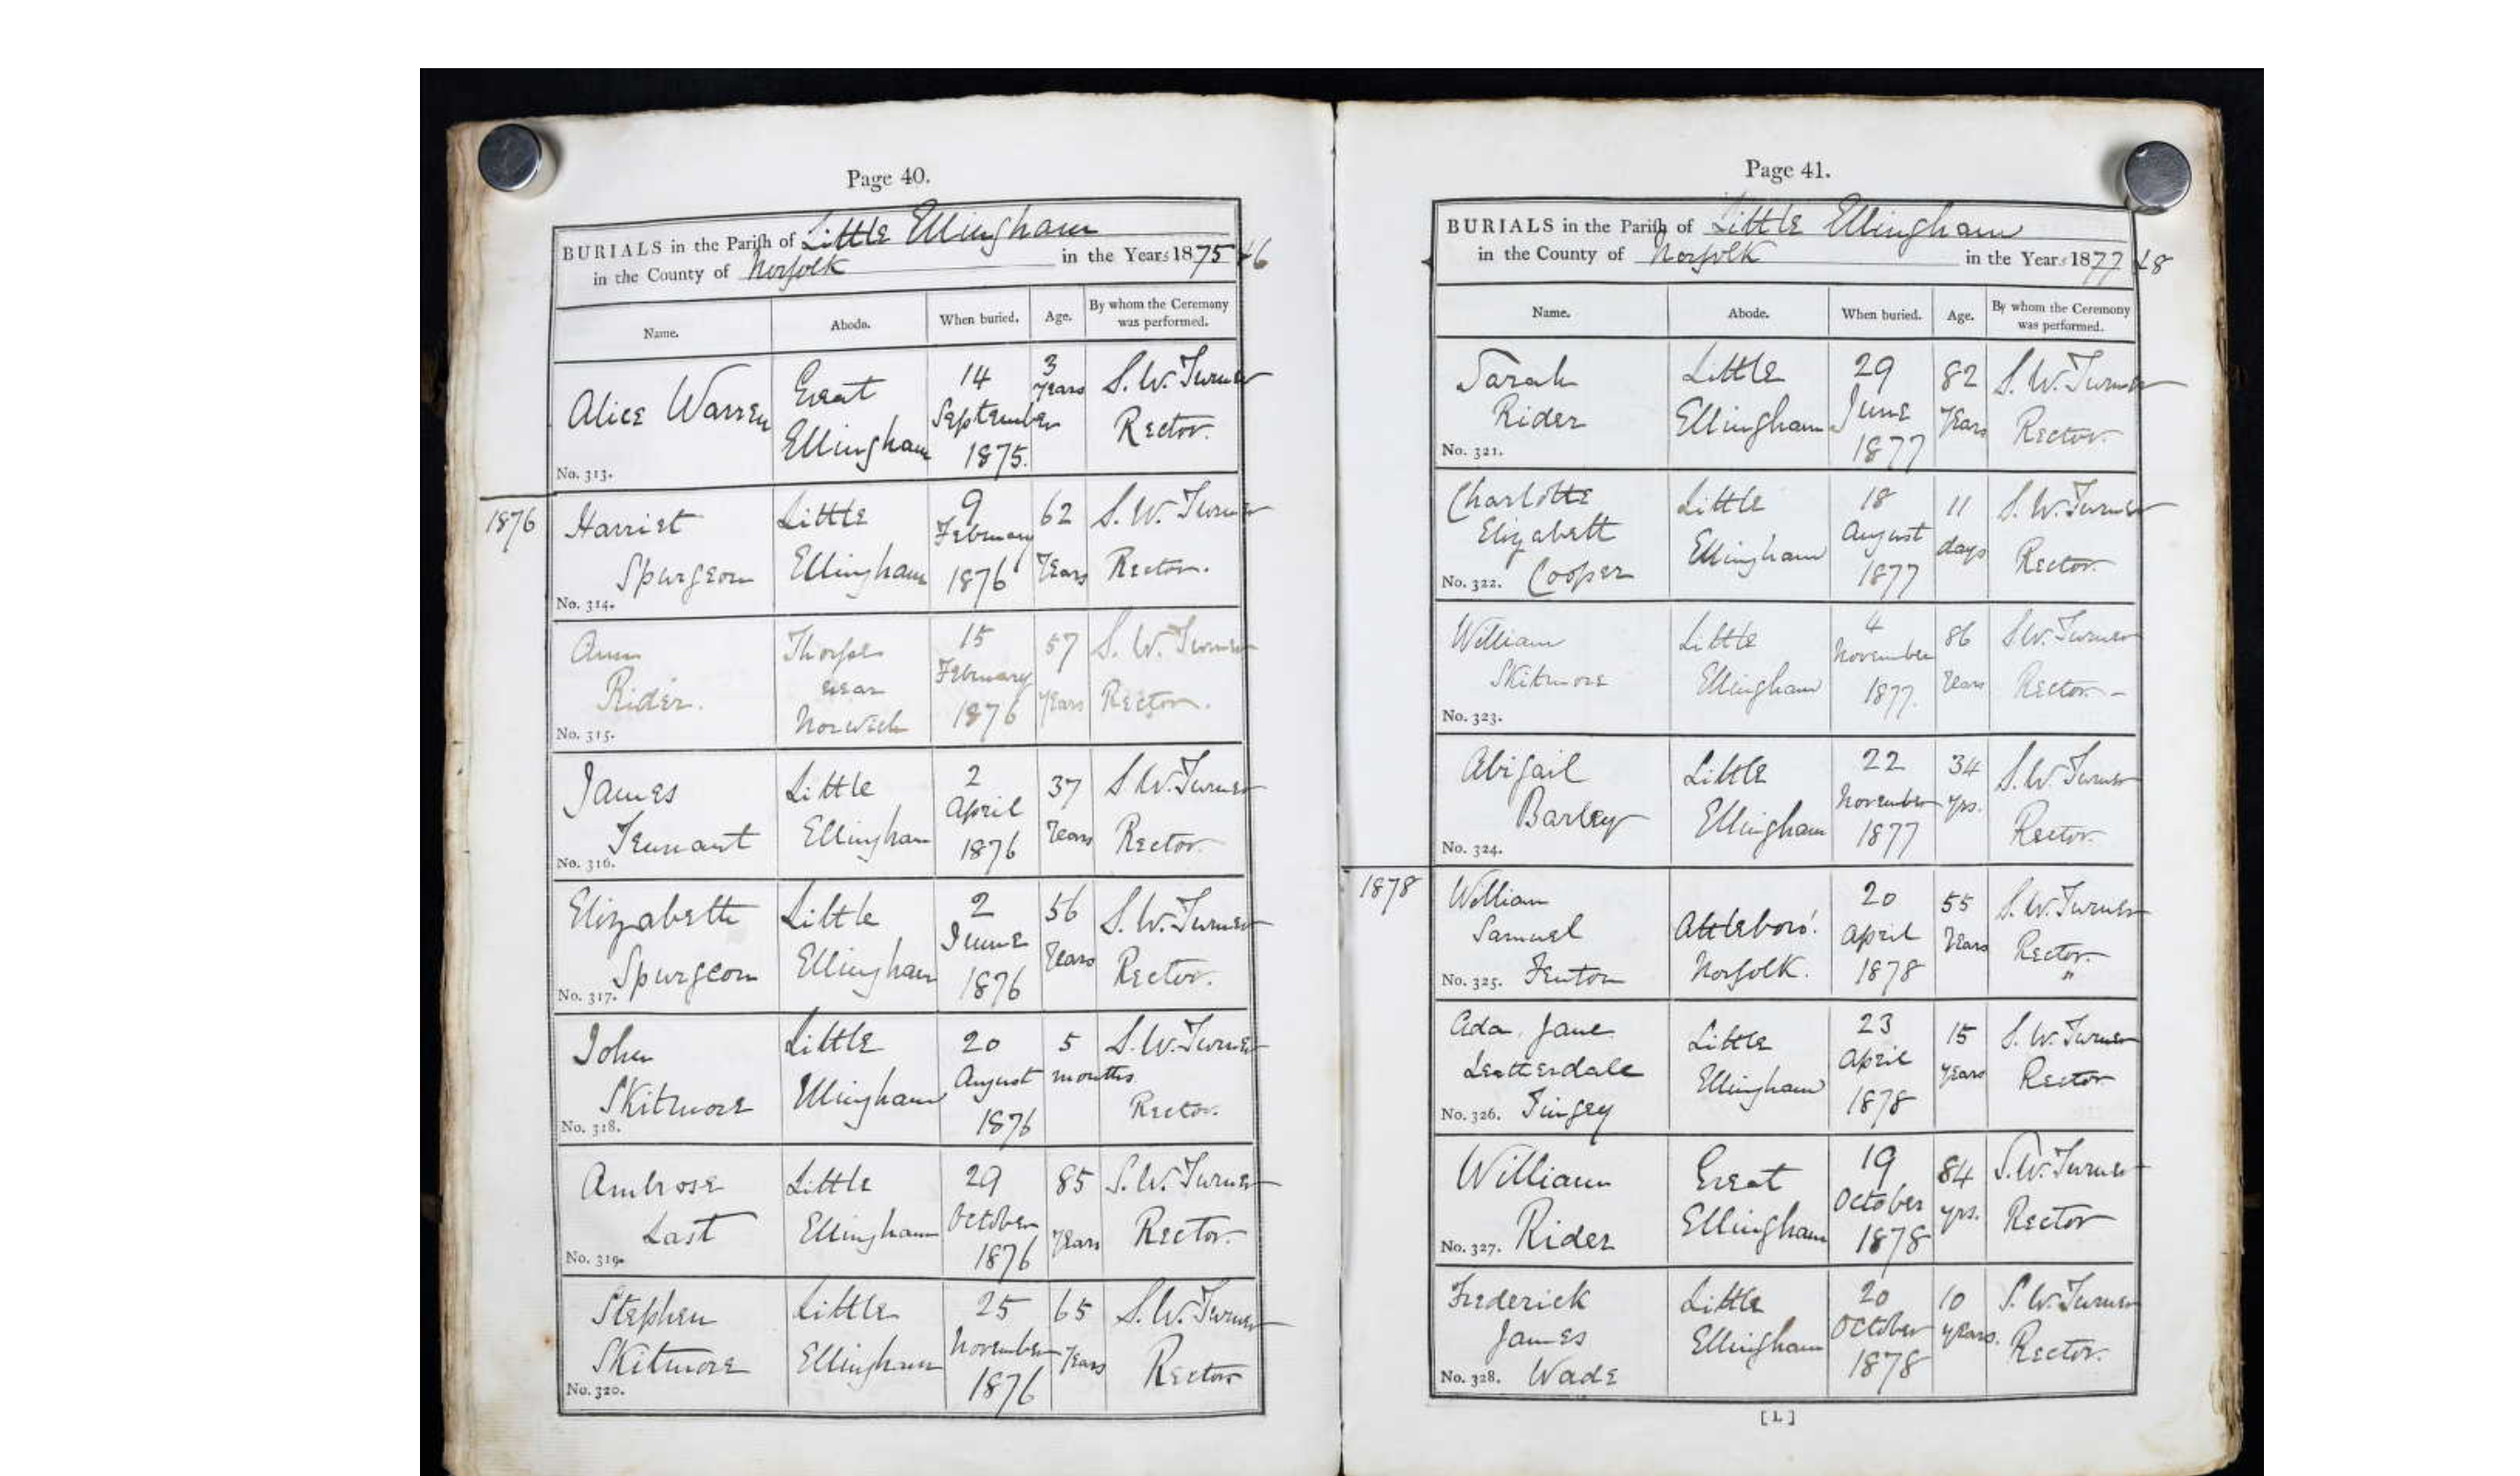 Page 40.
BURIALS in the Parish of Little Ellingham
in the County of Norfolk in the Years 1875 & 6
Name. Abode. When buried. Age. By whom the Ceremony was performed.
Alice Warren
No. 313.
Great
Ellingham
14
September
1875.
3
years
S. W. Turner
Rector.
1876
Harriet
Spurgeon
No. 314.
Little
Ellingham
9
February
1876
62
Years
S. W. Turner
Rector.
Ann
Rider.
No. 315.
Thorpe
near
Norwich
15
February
1876
57
years
S. W. Turner
Rector.
James
Tennant
No. 316.
Little
Ellingham
2
April
1876
37
Years
S W. Turner
Rector.
Elizabeth
Spurgeon
No. 317.
Little
Ellingham
2
June
1876
56
Years
S. W. Turner
Rector.
John
Skitmore
No. 318.
Little
Ellingham
20
August
1876
5
months
S. W. Turner
Rector.
Ambrose
Last
No. 319.
Little
Ellingham
29
October
1876
85
Years
S. W. Turner
Rector.
Stephen
Skitmore
No. 320.
Little
Ellingham
25
November
1876
65
Years
S. W. Turner
Rector
Page 41.
BURIALS in the Parish of Little Ellingham
in the County of Norfolk in the Years 1877 & 8
Name. Abode. When buried. Age. By whom the Ceremony was performed.
Sarah
Rider
No. 321.
Little
Ellingham
29
June
1877
82
Years
S. W. Turner
Rector.
Charlotte
Elizabeth
No. 322. Cooper
Little
Ellingham
18
August
1877
11
days
S. W. Turner
Rector.
William
Skitmore
No. 323.
Little
Ellingham
4
November
1877.
86
Years
S W. Turner
Rector. -
Abigail
Barley
No. 324.
Little
Ellingham
22
November
1877
34
yrs.
S. W. Turner
Rector.
1878
William
Samuel
No. 325. Fenton
Attleboro'.
Norfolk.
20
April
1878
55
Years
S. W. Turner
Rector.
"
Ada Jane
Leatterdale
No. 326. Tingey
Little
Ellingham
23
April
1878
15
years
S. W. Turner
Rector
William
No. 327. Rider
Great
Ellingham
19
October
1878
84
yrs.
S. W. Turner
Rector
Frederick
James
No. 328. Wade
Little
Ellingham
20
October
1878
10
years.
S. W. Turner
Rector.
[L]